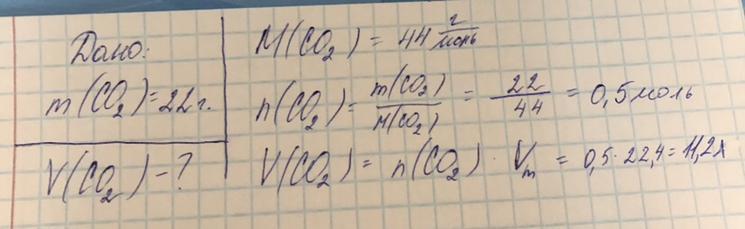 Дано:
m(CO₂)=22г.
V(CO₂)-?
M(CO₂) = 44 г/моль
n(CO₂) = m(CO₂)/M(CO₂) = 22/44 = 0,5 моль
V(CO₂) = n(CO₂) · Vₘ = 0,5·22,4=11,2л